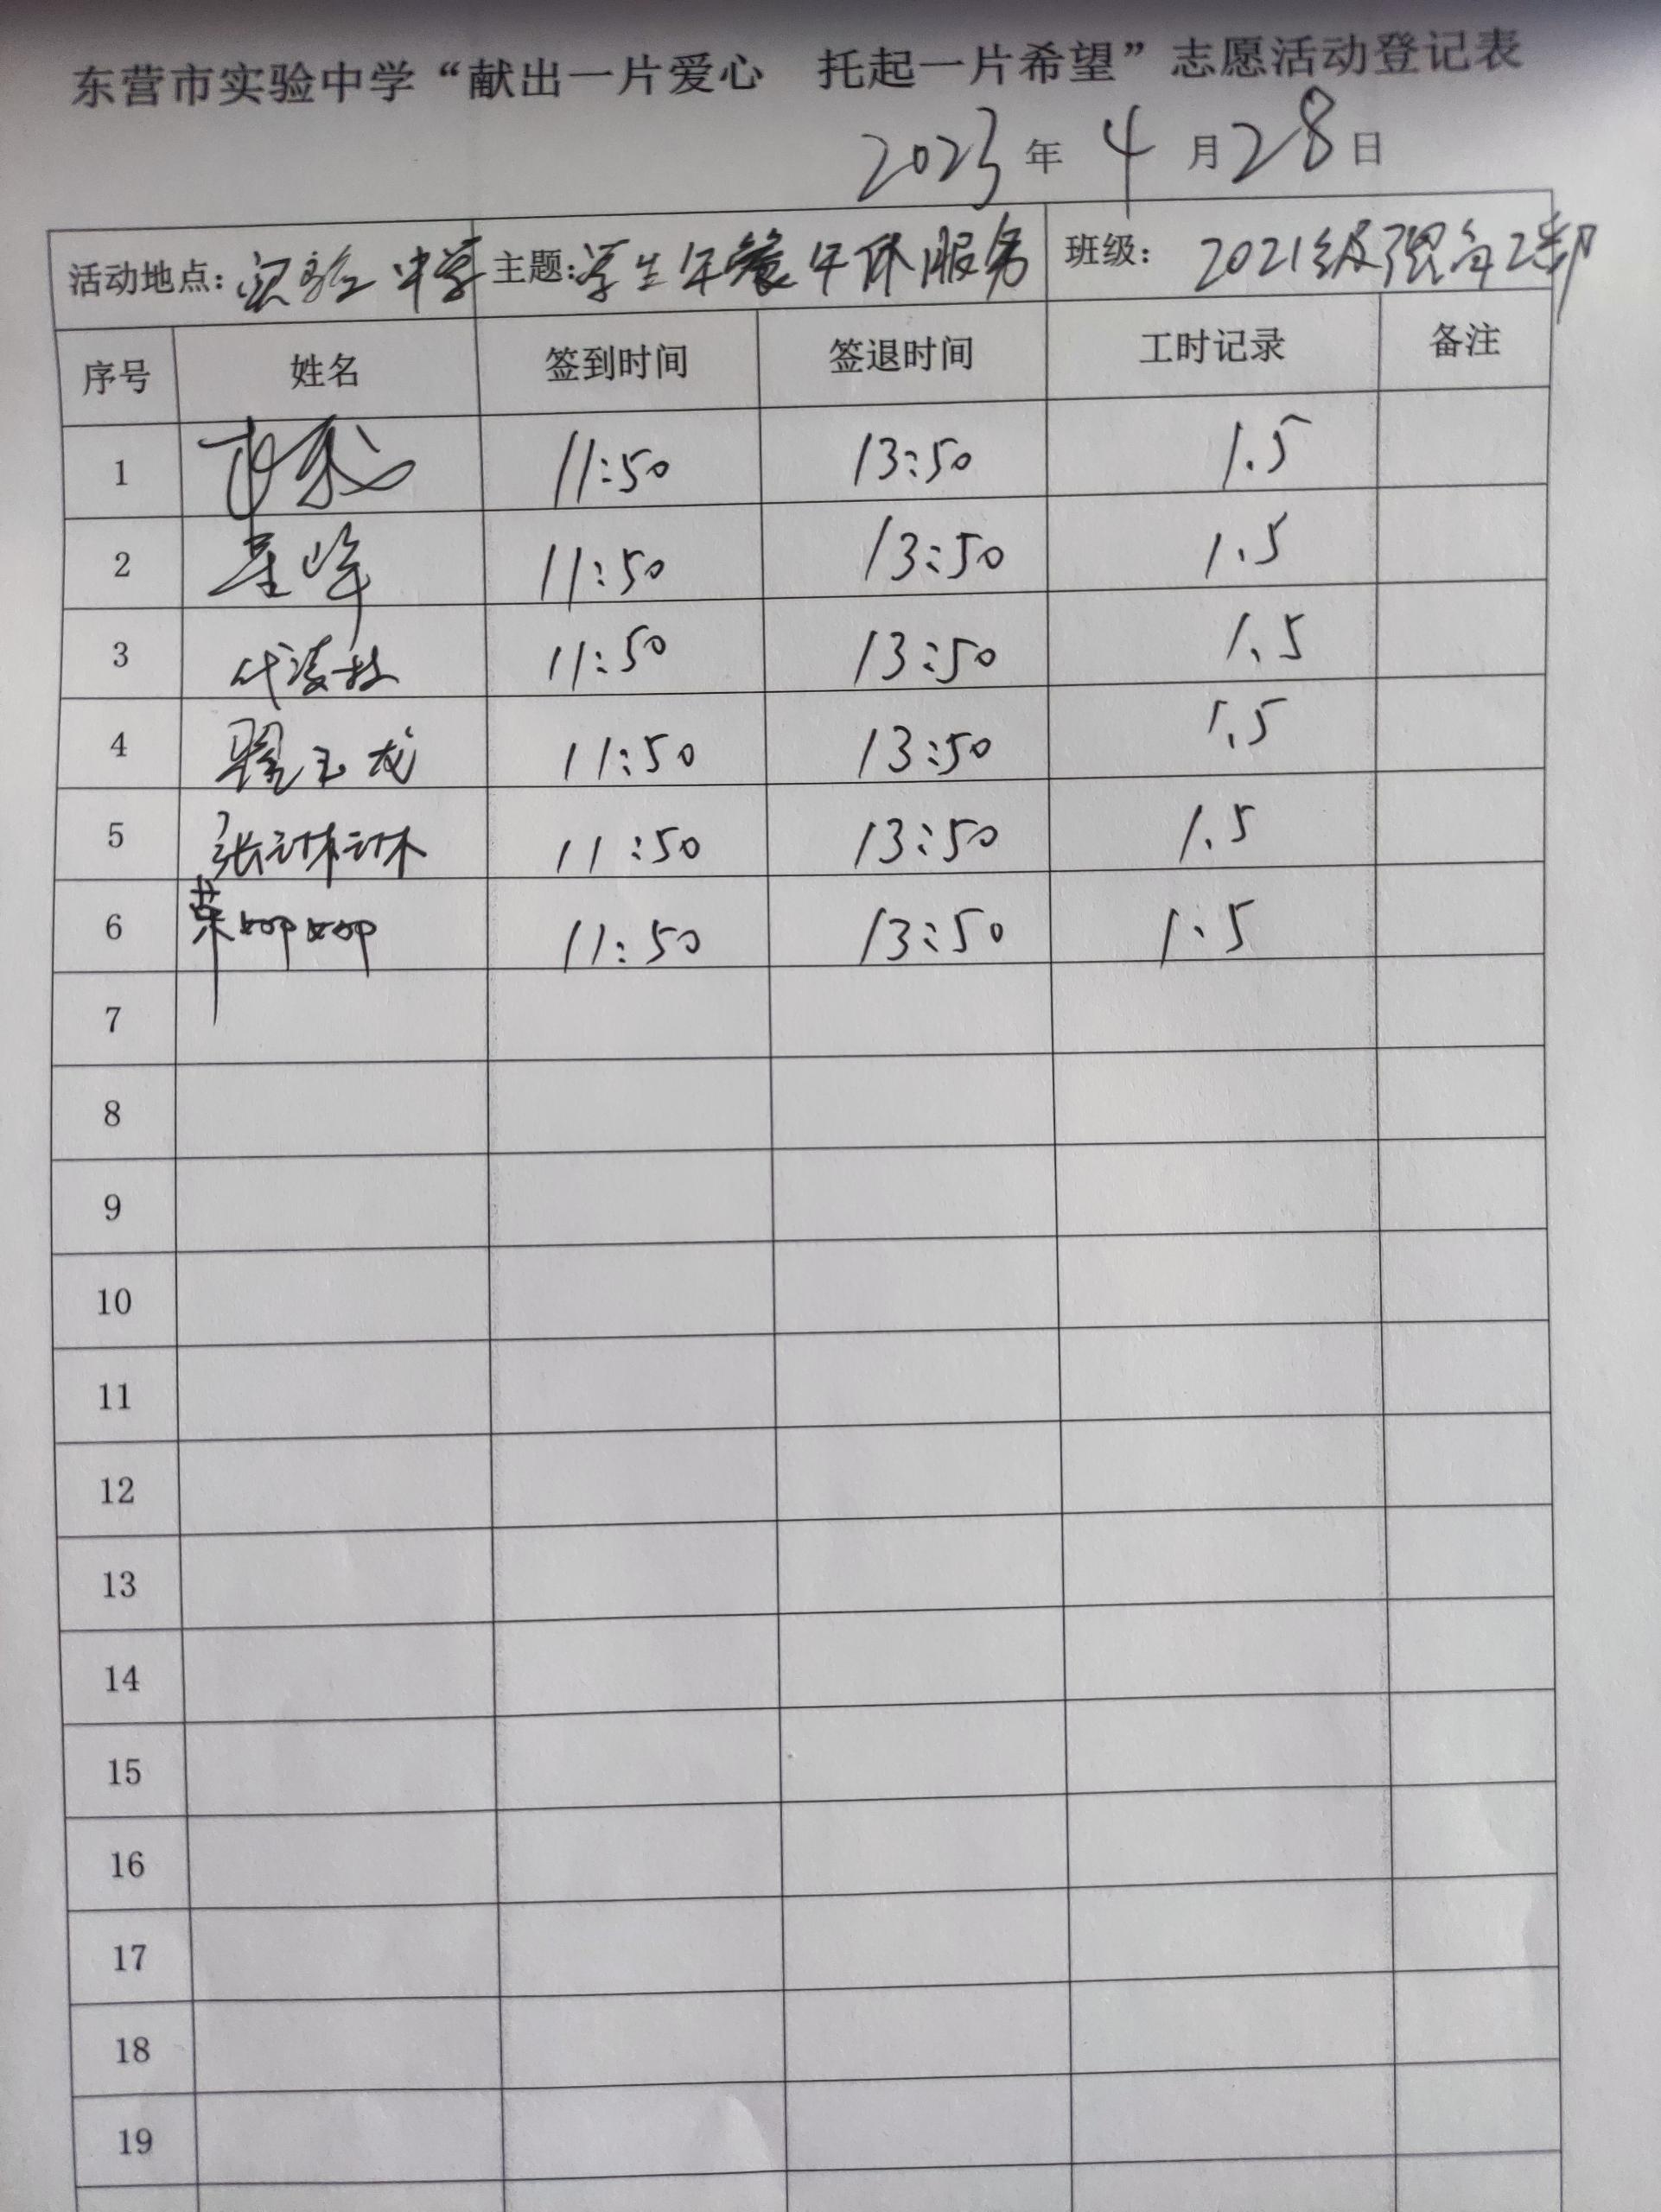 东营市实验中学“献出一片爱心 托起一片希望”志愿活动登记表
2023年4月28日
活动地点:实验中学 主题:学生午餐午休服务 班级: 2021级
序号 姓名 签到时间 签退时间 工时记录 备注
1 11:50 13:50 1.5
2 11:50 13:50 1.5
3 11:50 13:50 1.5
4 翟玉龙 11:50 13:50 1.5
5 张琳琳 11:50 13:50 1.5
6 11:50 13:50 1.5
7
8
9
10
11
12
13
14
15
16
17
18
19